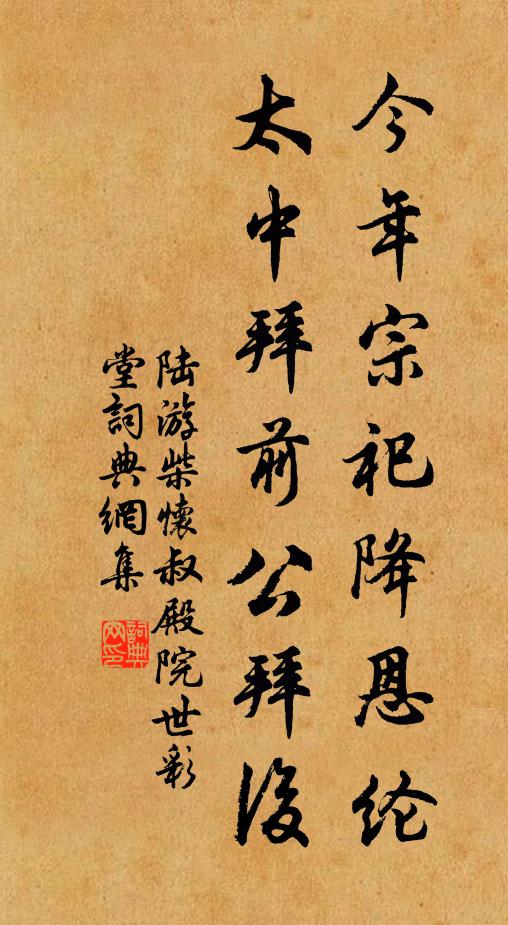 今年宗祀降恩纶
太中拜前公拜後
陆游柴懷叔殿院世彩
堂詞典網集
詞典网印